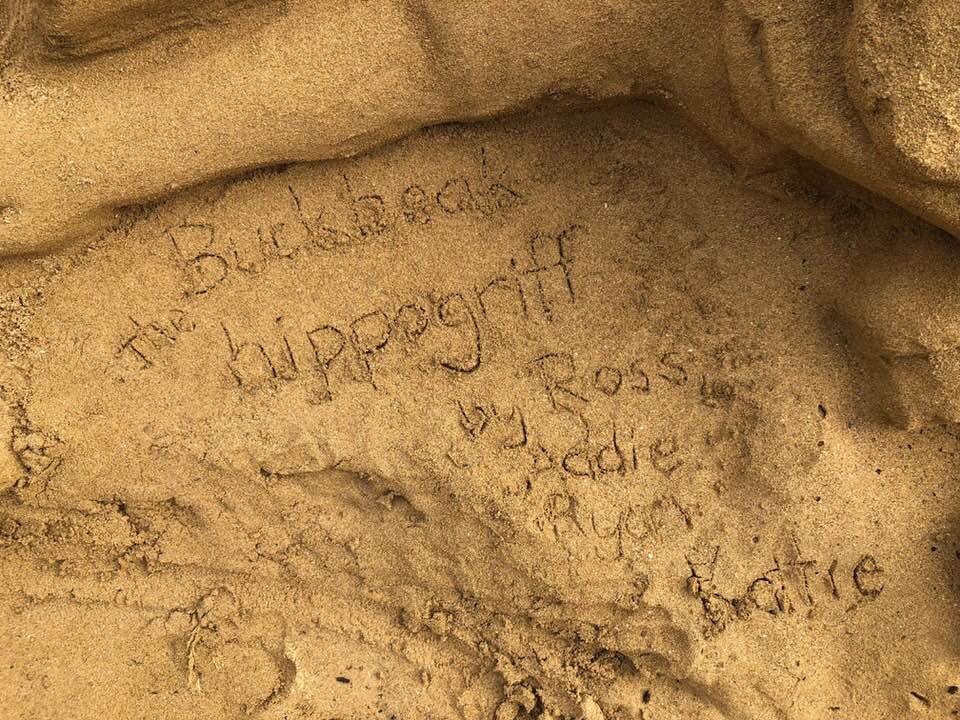 Buckbeak
the hippogriff
by Ross
Sadie
Ryan
Katie